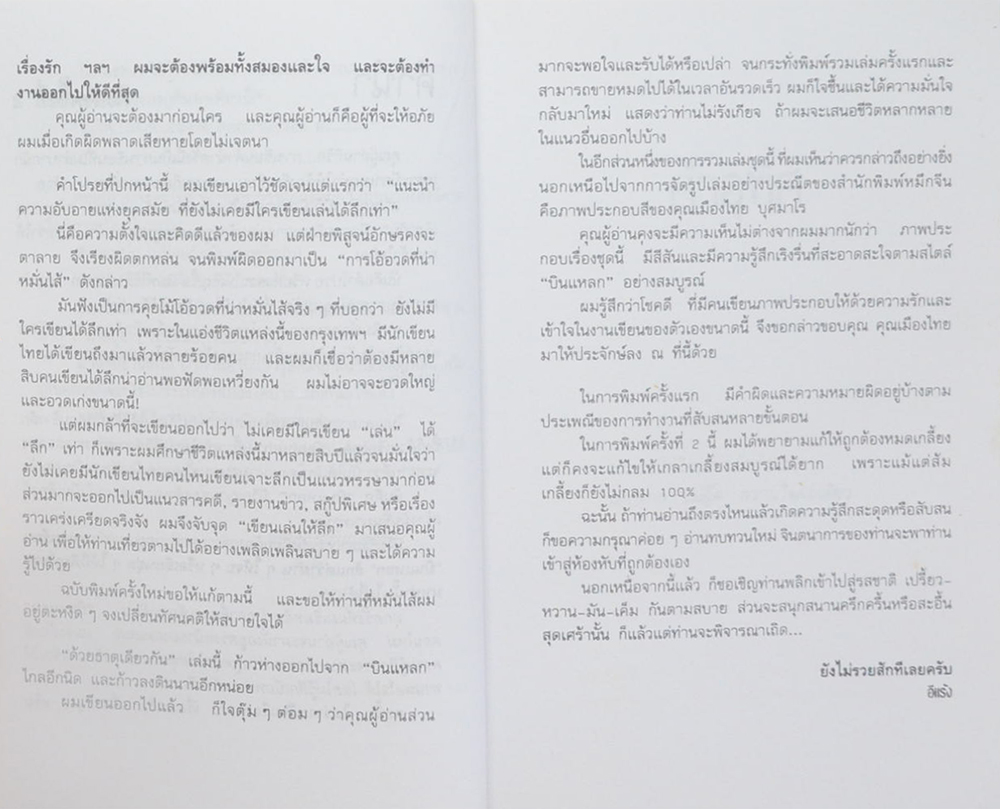 เรื่องรัก ฯลฯ ผมจะต้องพร้อมทั้งสมองและใจ และจะต้องทำ
งานออกไปให้ดีที่สุด
คุณผู้อ่านจะต้องมาก่อนใคร และคุณผู้อ่านก็คือผู้ที่จะให้อภัย
ผมเมื่อเกิดผิดพลาดเสียหายโดยไม่เจตนา
คำโปรยที่ปกหน้านี้ ผมเขียนเอาไว้ชัดเจนแต่แรกว่า “แนะนำ
ความอับอายแห่งยุคสมัย ที่ยังไม่เคยมีใครเขียนเล่นได้ลึกเท่า”
นี่คือความตั้งใจและคิดดีแล้วของผม แต่ฝ่ายพิสูจน์อักษรคงจะ
ตาลาย จึงเรียงผิดตกหล่น จนพิมพ์ผิดออกมาเป็น “การโอ้อวดที่น่า
หมั่นไส้” ดังกล่าว
มันฟังเป็นการคุยโม้โอ้อวดที่น่าหมั่นไส้จริง ๆ ที่บอกว่า ยังไม่มี
ใครเขียนได้ลึกเท่า เพราะในแอ่งชีวิตแหล่งนี้ของกรุงเทพฯ มีนักเขียน
ไทยได้เขียนถึงมาแล้วหลายร้อยคน และผมก็เชื่อว่าต้องมีหลาย
สิบคนเขียนได้ลึกน่าอ่านพอฟัดพอเหวี่ยงกัน ผมไม่อาจจะอวดใหญ่
และอวดเก่งขนาดนี้!
แต่ผมกล้าที่จะเขียนออกไปว่า ไม่เคยมีใครเขียน “เล่น” ได้
“ลึก” เท่า ก็เพราะผมศึกษาชีวิตแหล่งนี้มาหลายสิบปีแล้วจนมั่นใจว่า
ยังไม่เคยมีนักเขียนไทยคนไหนเขียนเจาะลึกเป็นแนวหรรษามาก่อน
ส่วนมากจะออกไปเป็นแนวสารคดี, รายงานข่าว, สกู๊ปพิเศษ หรือเรื่อง
ราวเคร่งเครียดจริงจัง ผมจึงจับจุด “เขียนเล่นให้ลึก” มาเสนอคุณผู้
อ่าน เพื่อให้ท่านเที่ยวตามไปได้อย่างเพลิดเพลินสบาย ๆ และได้ความ
รู้ไปด้วย
ฉบับพิมพ์ครั้งใหม่ขอให้แก้ตามนี้ และขอให้ท่านที่หมั่นไส้ผม
อยู่ตะหงิด ๆ จงเปลี่ยนทัศนคติให้สบายใจได้
“ด้วยธาตุเดียวกัน” เล่มนี้ ก้าวห่างออกไปจาก “บินแหลก”
ไกลอีกนิด และก้าวลงดินนานอีกหน่อย
ผมเขียนออกไปแล้ว ก็ใจตุ๊ม ๆ ต่อม ๆ ว่าคุณผู้อ่านส่วน
มากจะพอใจและรับได้หรือเปล่า จนกระทั่งพิมพ์รวมเล่มครั้งแรกและ
สามารถขายหมดไปได้ในเวลาอันรวดเร็ว ผมก็ใจชื้นและได้ความมั่นใจ
กลับมาใหม่ แสดงว่าท่านไม่รังเกียจ ถ้าผมจะเสนอชีวิตหลากหลาย
ในแนวอื่นออกไปบ้าง
ในอีกส่วนหนึ่งของการรวมเล่มชุดนี้ ที่ผมเห็นว่าควรกล่าวถึงอย่างยิ่ง
นอกเหนือไปจากการจัดรูปเล่มอย่างประณีตของสำนักพิมพ์หมึกจีน
คือภาพประกอบสีของคุณเมืองไทย บุศมาโร
คุณผู้อ่านคงจะมีความเห็นไม่ต่างจากผมมากนักว่า ภาพประ
กอบเรื่องชุดนี้ มีสีสันและมีความรู้สึกเริงรื่นที่สะอาดสะใจตามสไตล์
“บินแหลก” อย่างสมบูรณ์
ผมรู้สึกว่าโชคดี ที่มีคนเขียนภาพประกอบให้ด้วยความรักและ
เข้าใจในงานเขียนของตัวเองขนาดนี้ จึงขอกล่าวขอบคุณ คุณเมืองไทย
มาให้ประจักษ์ลง ณ ที่นี้ด้วย
ในการพิมพ์ครั้งแรก มีคำผิดและความหมายผิดอยู่บ้างตาม
ประเพณีของการทำงานที่สับสนหลายขั้นตอน
ในการพิมพ์ครั้งที่ 2 นี้ ผมได้พยายามแก้ให้ถูกต้องหมดเกลี้ยง
แต่ก็คงจะแก้ไขให้เกลาเกลี้ยงสมบูรณ์ได้ยาก เพราะแม้แต่ส้ม
เกลี้ยงก็ยังไม่กลม 100%
ฉะนั้น ถ้าท่านอ่านถึงตรงไหนแล้วเกิดความรู้สึกสะดุดหรือสับสน
ก็ขอความกรุณาค่อย ๆ อ่านทบทวนใหม่ จินตนาการของท่านจะพาท่าน
เข้าสู่ห้องหับที่ถูกต้องเอง
นอกเหนือจากนี้แล้ว ก็ขอเชิญท่านพลิกเข้าไปสู่รสชาติ เปรี้ยว-
หวาน-มัน-เค็ม กันตามสบาย ส่วนจะสนุกสนานครึกครื้นหรือสะอื้น
สุดเศร้านั้น ก็แล้วแต่ท่านจะพิจารณาเถิด...
ยังไม่รวยสักทีเลยครับ
อีแร้ง